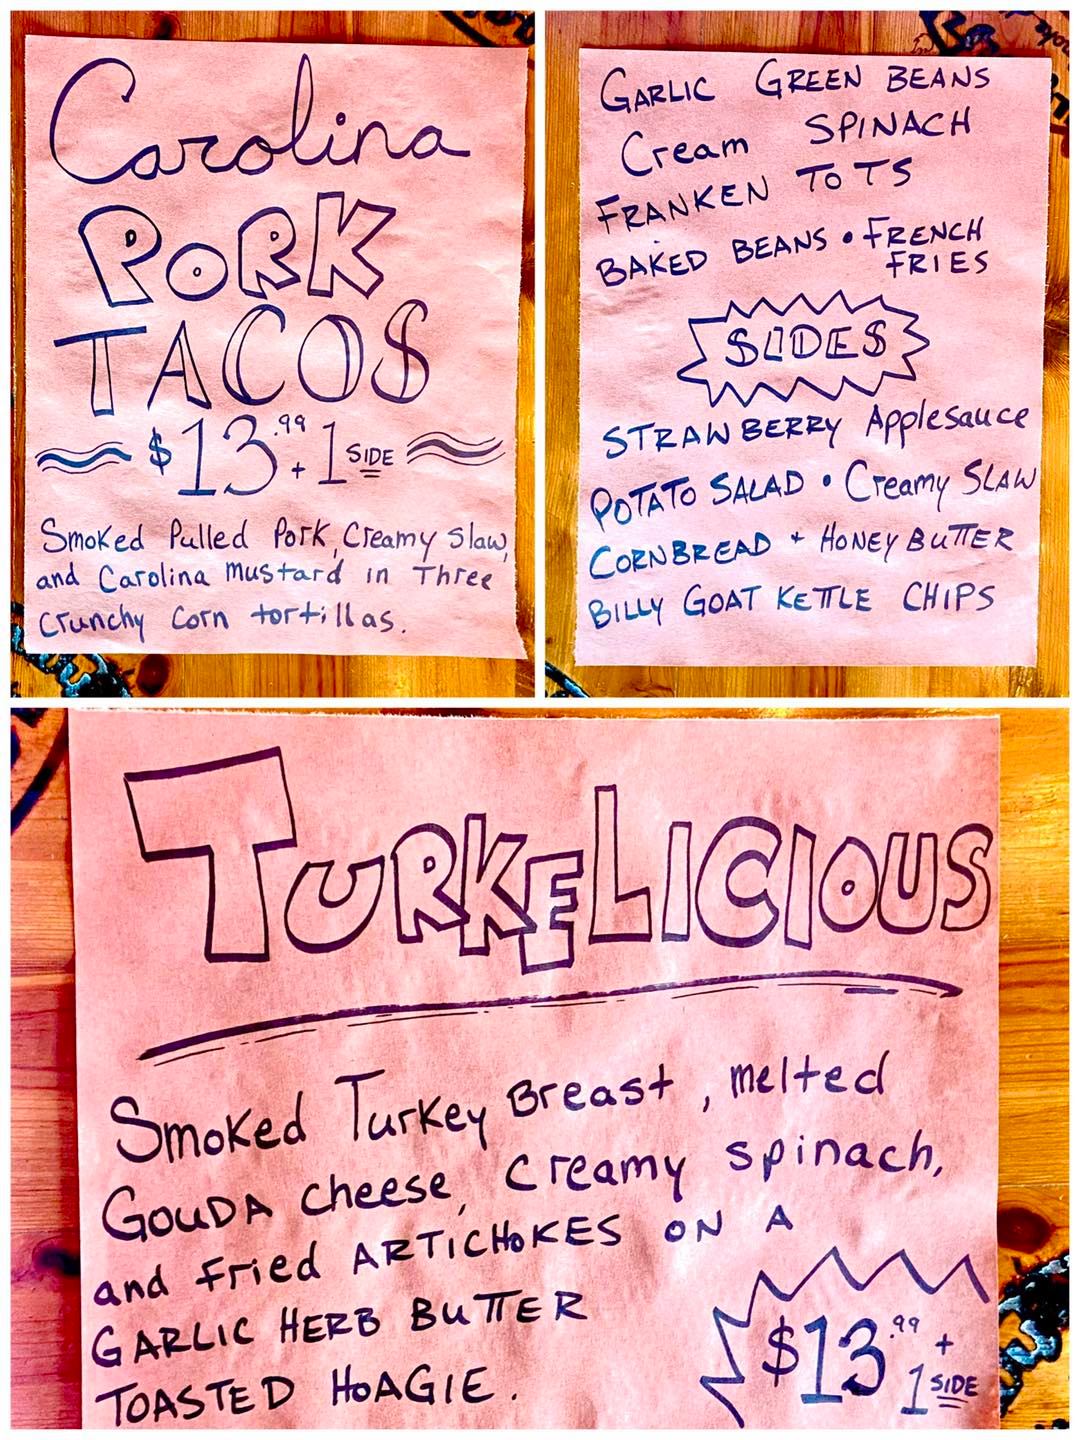 Carolina
PORK
TACOS
$13.99 + 1 SIDE
Smoked Pulled Pork, Creamy Slaw,
and Carolina Mustard in Three
crunchy corn tortillas.
GARLIC GREEN BEANS
Cream SPINACH
FRANKEN TOTS
BAKED BEANS • FRENCH
FRIES
SIDES
STRAWBERRY Applesauce
POTATO SALAD • Creamy SLAW
CORNBREAD + HONEY BUTTER
BILLY GOAT KETTLE CHIPS
TURKELICIOUS
Smoked Turkey Breast, melted
GOUDA cheese, creamy spinach,
and fried ARTICHOKES ON A
GARLIC HERB BUTTER
TOASTED HOAGIE.
$13.99 +
1 SIDE